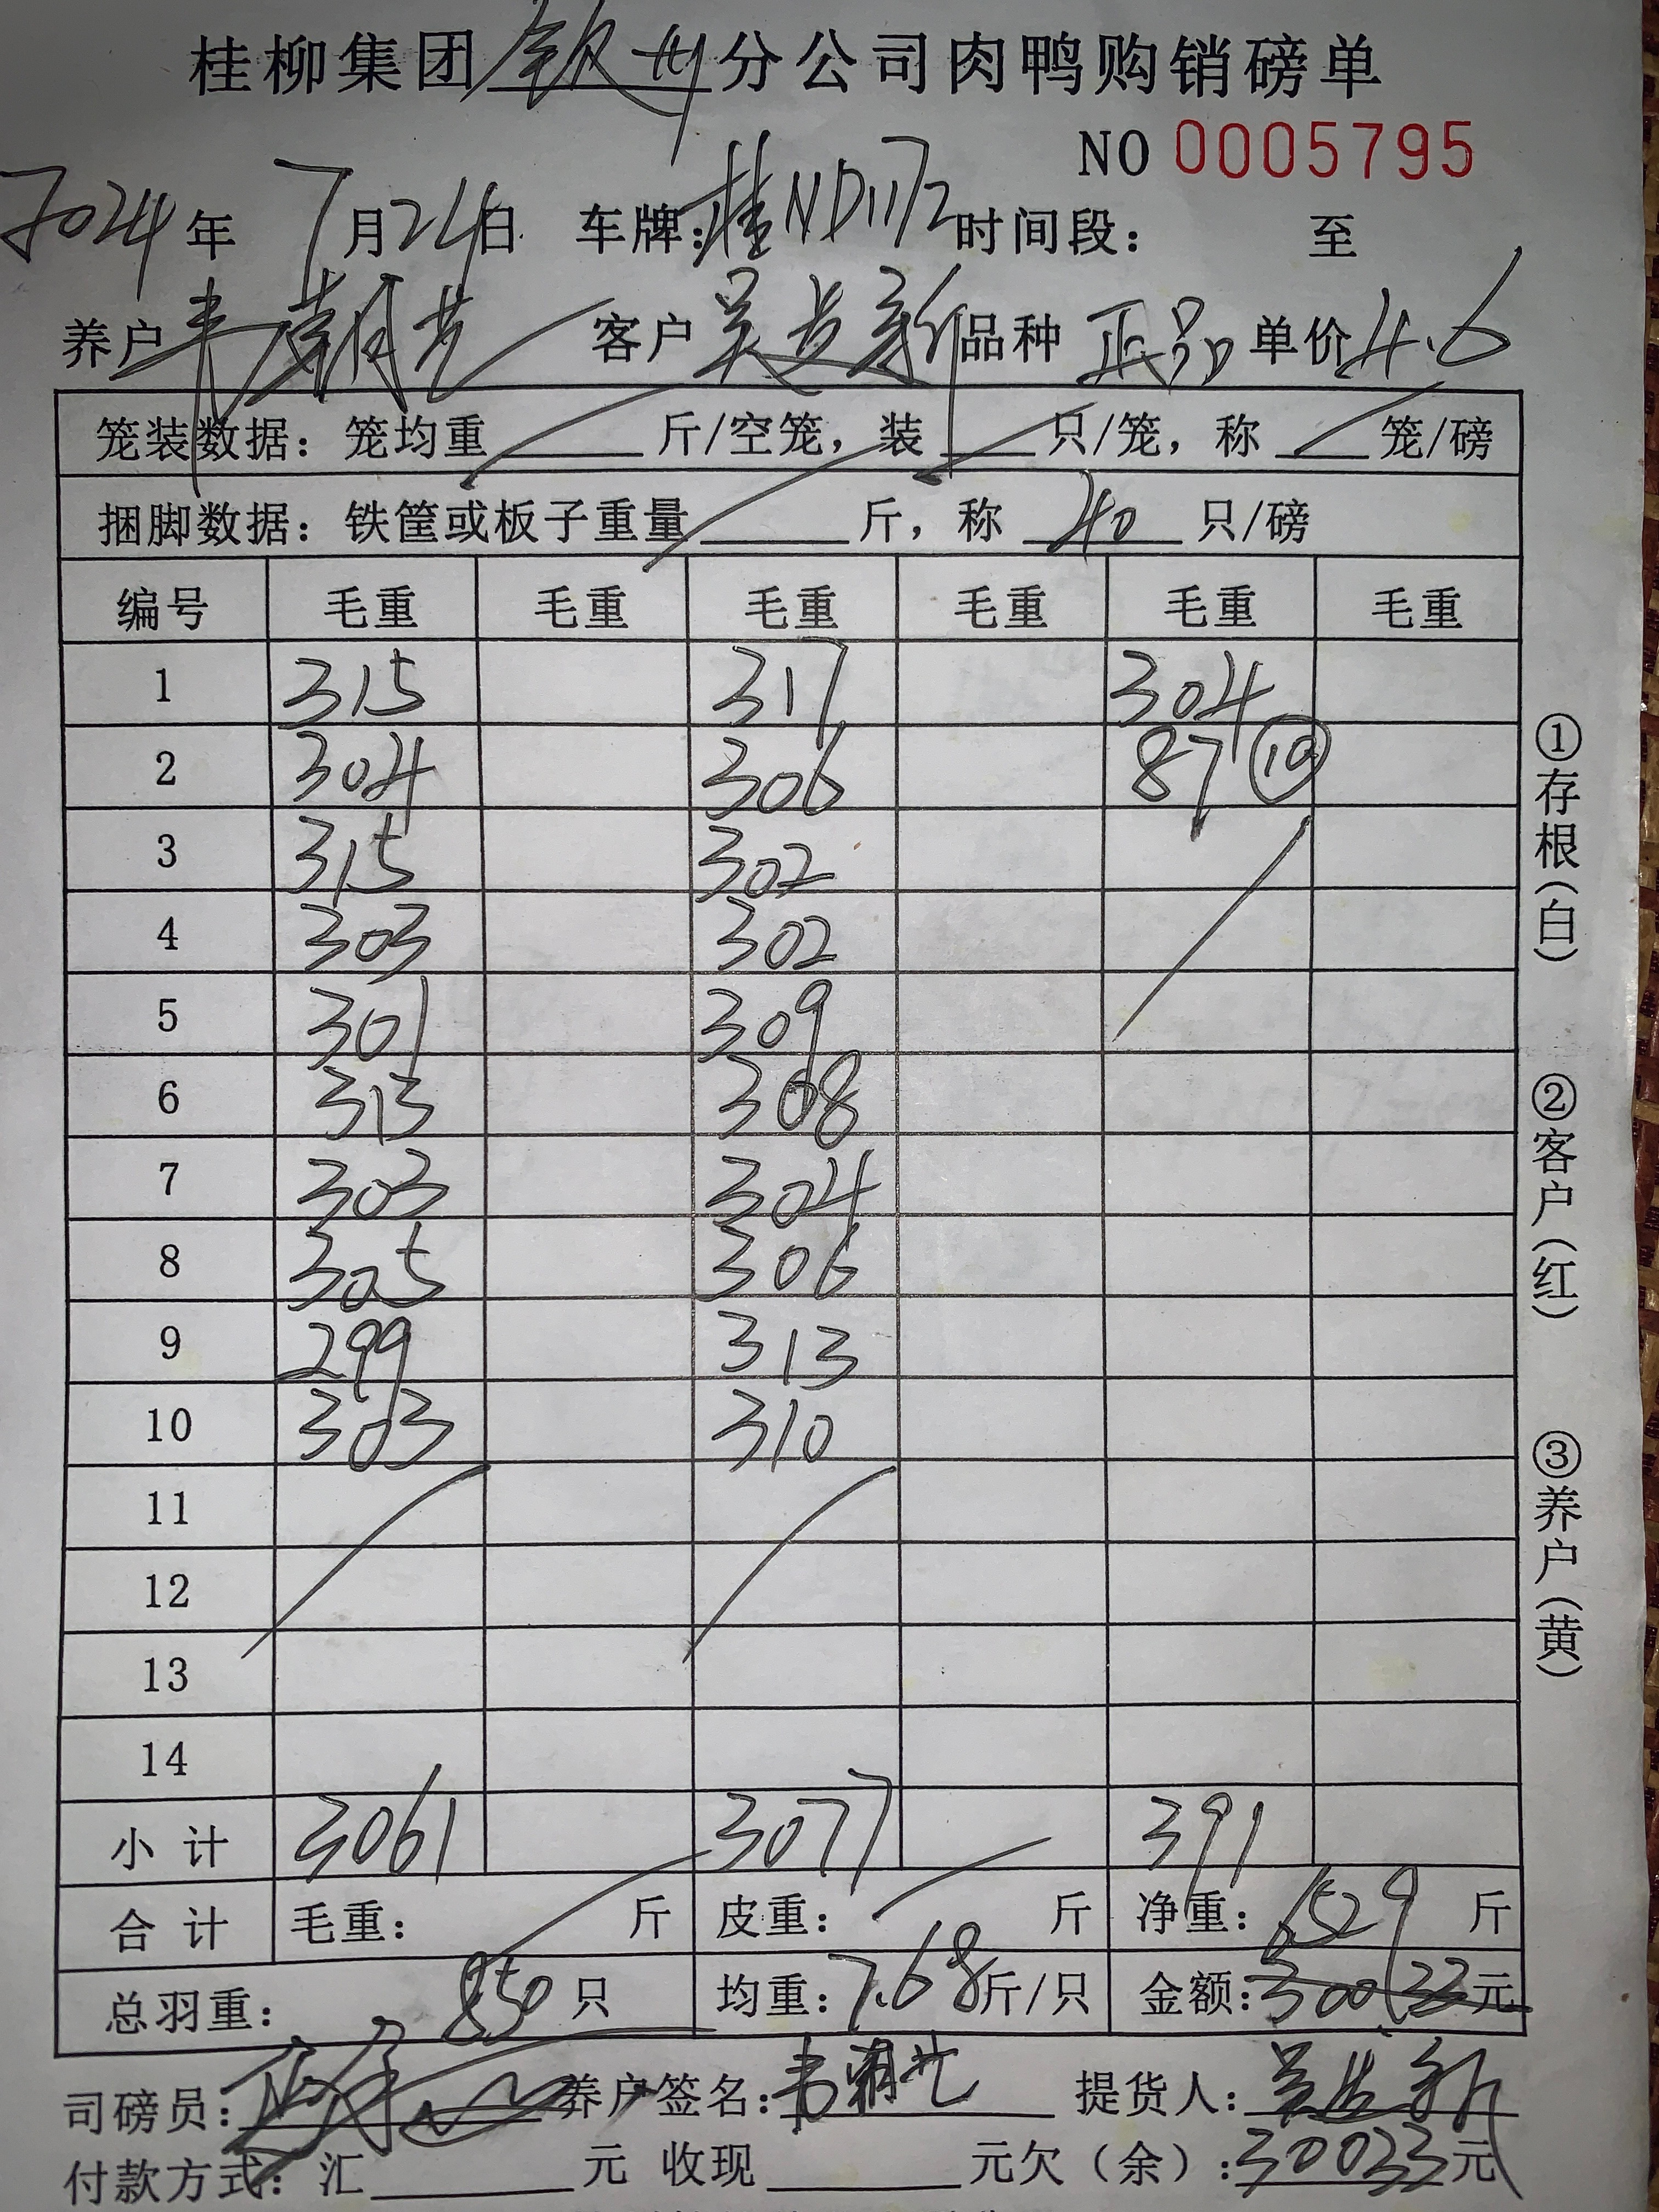 桂柳集团钦州分公司肉鸭购销磅单
NO 0005795
2024年 7月24日 车牌:桂ND1172 时间段: 至
养户 韦朝艺 客户 吴 新 品种 正品 单价 4.6
笼装数据: 笼均重 斤/空笼, 装 只/笼, 称 笼/磅
捆脚数据: 铁筐或板子重量 斤, 称 40 只/磅
编号 毛重 毛重 毛重 毛重 毛重 毛重
1 315 317 304
2 304 306 87 ⑩
3 315 302
4 303 302
5 301 309
6 313 308
7 303 304
8 305 306
9 299 313
10 303 310
11
12
13
14
小计 3061 3077 391
合计 毛重: 斤 皮重: 斤 净重: 6529 斤
总羽重: 850 只 均重: 7.68 斤/只 金额: 30033 元
司磅员: 养户签名: 韦朝艺 提货人: 吴 新
付款方式: 汇 元 收现 元欠(余): 30033 元
①存根(白)
②客户(红)
③养户(黄)